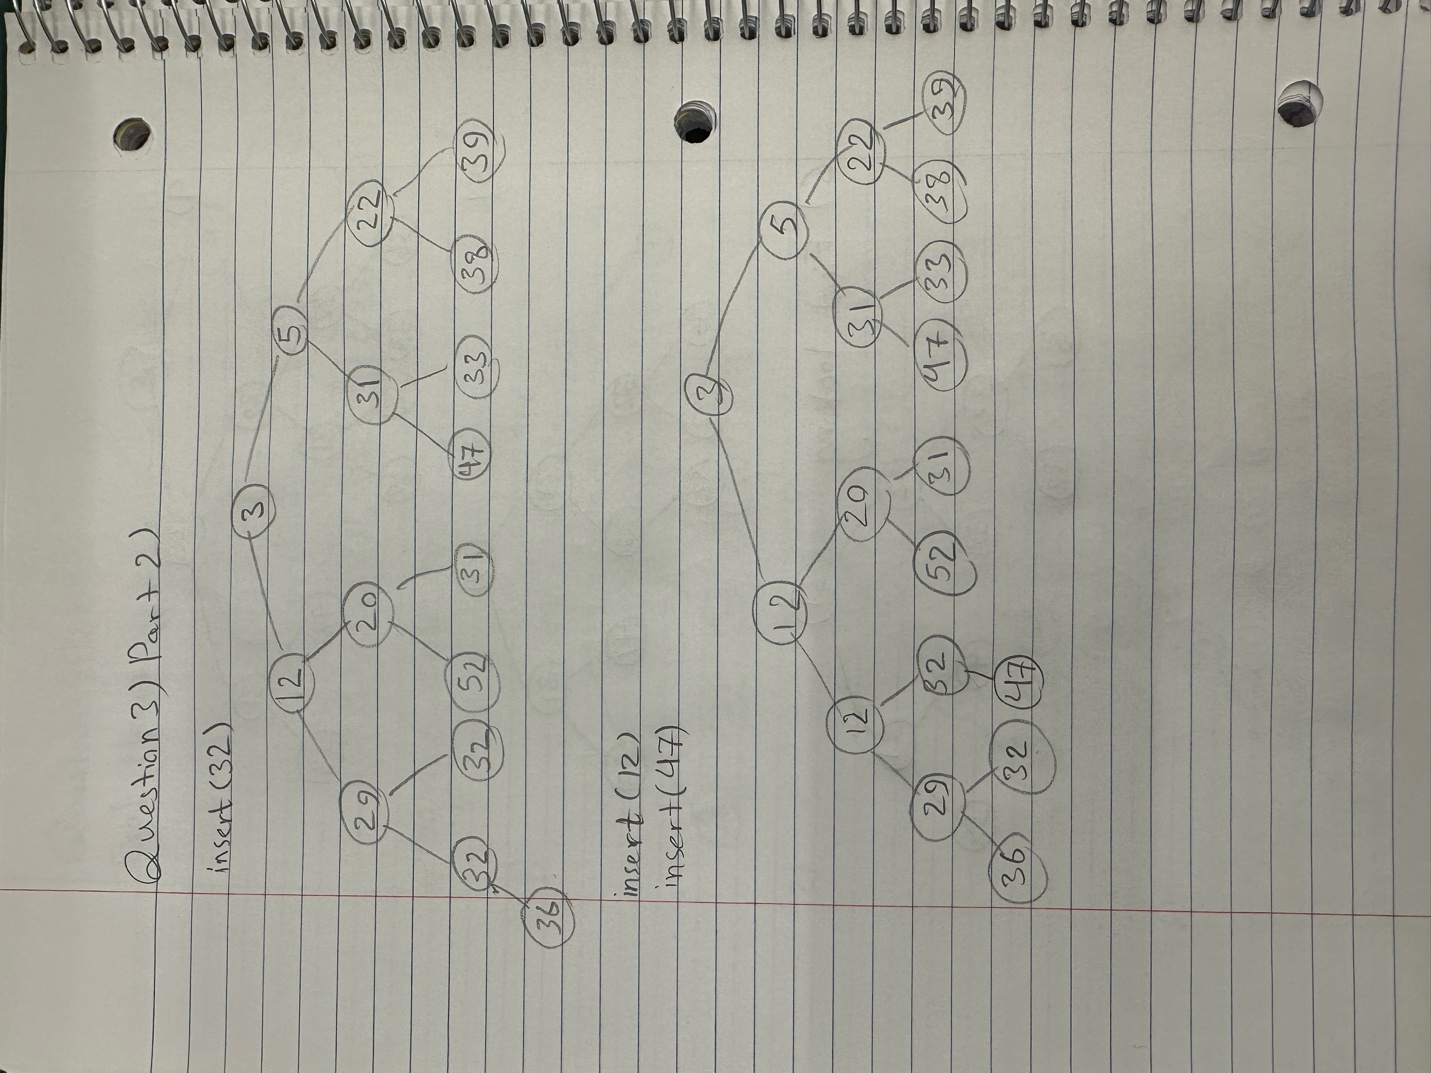 Question 3) Part 2)
insert(32)
3
12 5
29 20 31 22
32 32 52 31 47 33 38 39
36
insert(12)
insert(47)
3
12 5
12 20 31 22
29 32 52 31 47 33 38 39
36 32 47